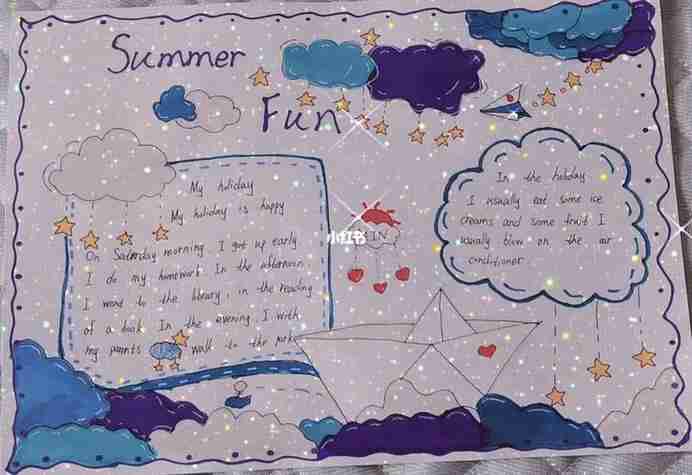 Summer
Fun
My holiday
My holiday is happy
On Saturday morning I got up early
I do my homework In the afternoon
I went to the library, in the reading
of a book In the evening I with
my parents walk in the park
小红书
IN
In the holiday
I usually eat some ice
creams and some fruit I
usually blow on the air
conditioner